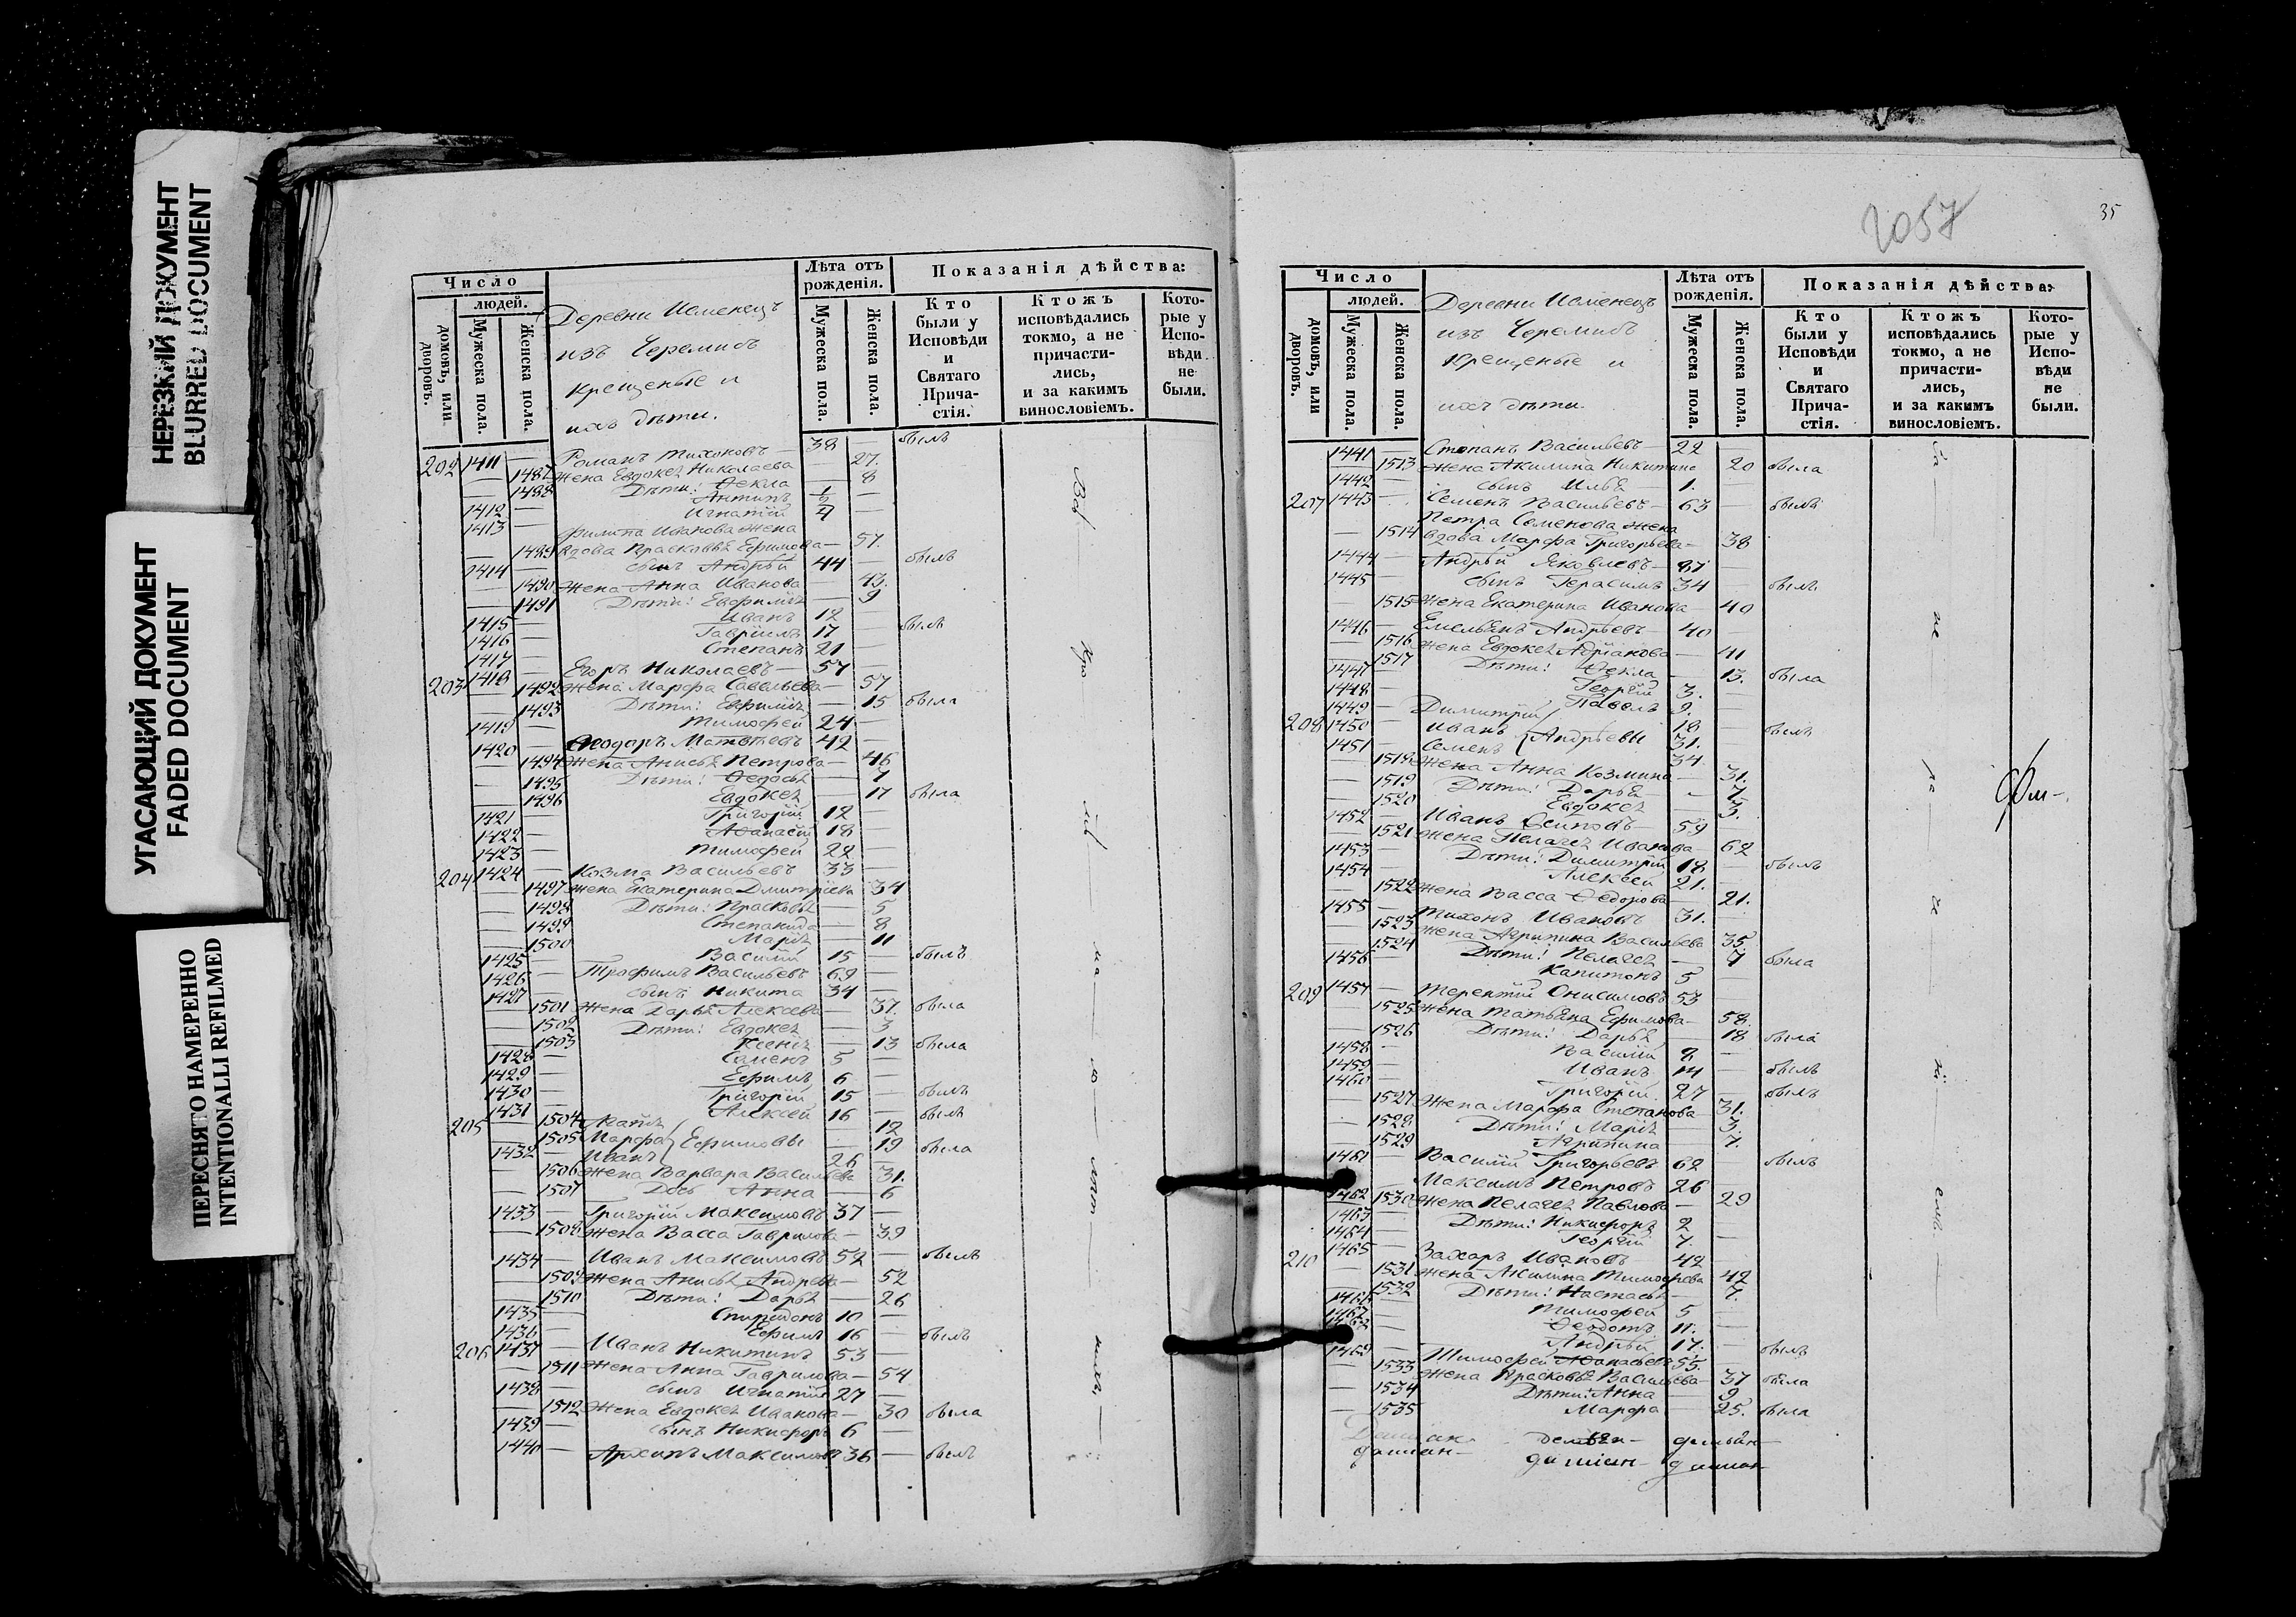 НЕРЕЗКИЙ ДОКУМЕНТ
BLURRED DOCUMENT
УГАСАЮЩИЙ ДОКУМЕНТ
FADED DOCUMENT
ПЕРЕСНЯТО НАМЕРЕННО
INTENTIONALLI REFILMED
Число
людей.
домовъ, или дворовъ.
Мужеска пола.
Женска пола.
Деревни Исменецъ
изъ Черемисъ
крещеные и
ихъ дѣти.
Лѣта отъ рожденія.
Мужеска пола.
Женска пола.
Показанія дѣйства:
Кто были у Исповѣди и Святаго Прича-стія.
Ктожъ исповѣдались токмо, а не причасти-лись, и за какимъ винословіемъ.
Кото-рые у Испо-вѣди не были.
202 1411 — Романъ Тихоновъ — 38 — былъ
— 1487 Жена Евдокея Николаева — 27.
— 1488 Дѣти: Ѳекла — 8
1412 — Антипъ 1/2 —
1413 — Игнатій 4 —
Филипа Иванова жена
— 1489 вдова Прасковья Ефимова — 57.
1414 — сынъ Андрей 44 — былъ
— 1490 Жена Анна Иванова — 43.
— 1491 Дѣти: Евфимія — 9
1415 — Иванъ 12 —
1416 — Гавріилъ 17 — былъ
1417 — Степанъ 21 —
203 1418 — Егоръ Николаевъ — 57 —
— 1492 Жена Марфа Савельева — 57
— 1493 Дѣти: Евфимія — 15 была
1419 — Тимофей 24 —
1420 — Ѳеодоръ Матвѣевъ 42 —
— 1494 Жена Анисья Петрова — 46
— 1495 Дѣти: Ѳедосья — 7
— 1496 Евдокея — 17 была
1421 — Григорій 12 —
1422 — Аѳанасій 18 —
1423 — Тимофей 22 —
204 1424 — Козма Васильевъ 33 —
— 1497 Жена Екатерина Дмитріева 34
— 1498 Дѣти: Прасковья — 5
— 1499 Степанида — 8
— 1500 Марія — 11
1425 — Василій 15 — былъ
1426 — Трофимъ Васильевъ 69 —
1427 — сынъ Никита 34 —
— 1501 Жена Дарья Алексева — 37. была
— 1502 Дѣти: Евдокея — 3
— 1503 Ксенія — 13 была
1428 — Семенъ 5 —
1429 — Ефимъ 6 —
1430 — Григорій 15 — былъ
1431 — Алексей 16 — былъ
205 — 1504 Агафія — 12
— 1505 Марфа Ефимовы — 19 была
1432 — Иванъ 26
— 1506 Жена Варвара Васильева 31.
— 1507 Дочь Анна — 6
1433 — Григорій Максимовъ 37 —
— 1508 Жена Васса Гаврилова — 39
1434 — Иванъ Максимовъ 52 — былъ
— 1509 Жена Анисья Андрева — 52
— 1510 Дѣти: Дарья — 26
1435 — Спиридонъ 10 —
1436 — Ефимъ 16 — былъ
206 1437 — Иванъ Никитинъ 53 —
— 1511 Жена Анна Гаврилова — 54
1438 — сынъ Игнатій 27 —
— 1512 Жена Евдокея Иванова — 30 была
1439 — сынъ Никифоръ 6 —
1440 — Архипъ Максимовъ 36 — былъ
2057
35
Число
людей.
домовъ, или дворовъ.
Мужеска пола.
Женска пола.
Деревни Исменецъ
изъ Черемисъ
крещеные и
ихъ дѣти.
Лѣта отъ рожденія.
Мужеска пола.
Женска пола.
Показанія дѣйства:
Кто были у Исповѣди и Святаго Прича-стія.
Ктожъ исповѣдались токмо, а не причасти-лись, и за какимъ винословіемъ.
Кото-рые у Испо-вѣди не были.
1441 — Степанъ Васильевъ — 22
— 1513 Жена Акилина Никитина 20 была
1442 — сынъ Илья — 1.
207 1443 — Семенъ Васильевъ — 63 — былъ
Петра Семенова жена
— 1514 вдова Марфа Григорьева — 38
1444 — Андрей Яковлевъ —
1445 — сынъ Герасимъ 34 — былъ
— 1515 Жена Екатерина Иванова — 40
1446 — Емельянъ Андреевъ — 40 —
— 1516 Жена Евдокея Адріанова — 41
— 1517 Дѣти: Ѳекла — 13. была
1447 — Георгій 3. —
1448 — Павелъ 9. —
1449 — Димитрій 18 — былъ
208 1450 — Иванъ Андреевы 31.
1451 — Семенъ 34
— 1518 Жена Анна Козмина — 31.
— 1519 Дѣти: Дарья — 7
— 1520 Евдокея 3.
1452 — Иванъ Осиповъ — 59
— 1521 Жена Пелагея Иванова — 62
1453 — Дѣти: Димитрій 18 — былъ
1454 — Алексей 21. —
— 1522 Жена Васса Ѳедорова — 21.
1455 — Тихонъ Ивановъ 31. —
— 1523 Жена Агрипина Васильева 35.
— 1524 Дѣти: Пелагея — 7 была
1456 — Капитонъ 5
209 1457 — Терентій Онисимовъ 53
— 1525 Жена Татьяна Ефимова — 58.
— 1526 Дѣти: Дарья — 18 была
1458 — Василій 8 —
1459 — Иванъ 14 — былъ
1460 — Григорій 27 — былъ
— 1527 Жена Марфа Степанова 31.
— 1528 Дѣти: Марія — 3.
— 1529 Агрипина — 7.
1461 — Василій Григорьевъ 62 — былъ
1462 — Максимъ Петровъ 26
— 1530 Жена Пелагея Павлова — 29
1463 — Дѣти: Никифоръ 2 —
1464 — Георгій 7. —
210 1465 — Захаръ Ивановъ 42 —
— 1531 Жена Акилина Тимофеева 42
— 1532 Дѣти: Настасья — 7.
1466 — Тимофей 5 —
1467 — Ѳеодотъ 11. —
1468 — Андрей 17. — былъ
1469 — Тимофей Аѳанасьевъ 55.
— 1533 Жена Прасковья Васильева — 37 была
— 1534 Дѣти: Анна 9
— 1535 Марфа — 25. была